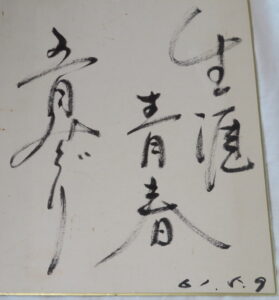 生涯
青春
五月みどり
61.5.9